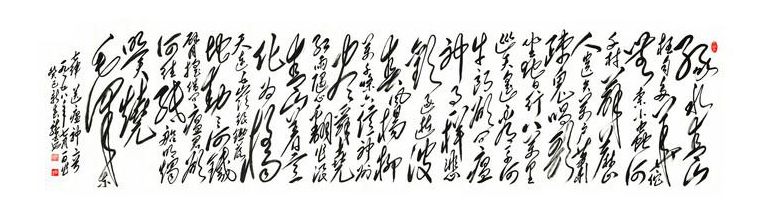 绿水青山
枉自多华佗
無奈小虫何
千村薜荔
人遗矢万户萧
疏鬼唱歌
坐地日行八万里
巡天遥看一千河
牛郎欲问瘟
神事一样悲
欢逐逝波
春风杨柳
万千条六亿神州
尽舜尧
红雨随心翻作浪
青山着意
化为桥
天连五岭银锄落
地动三河铁
臂摇借问瘟君欲
何往纸船明烛
照天烧
毛泽东
七律送瘟神二首
一九五八年七月一日
癸巳